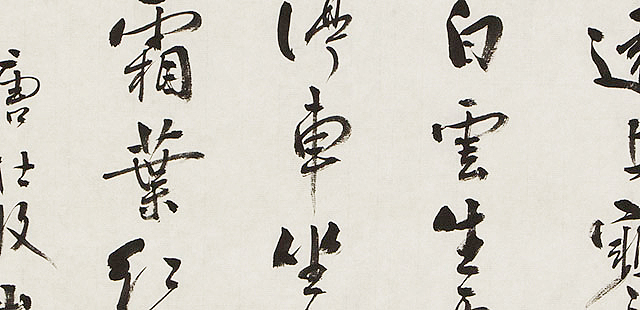 遠上寒
白雲生
停車坐
霜葉紅
唐